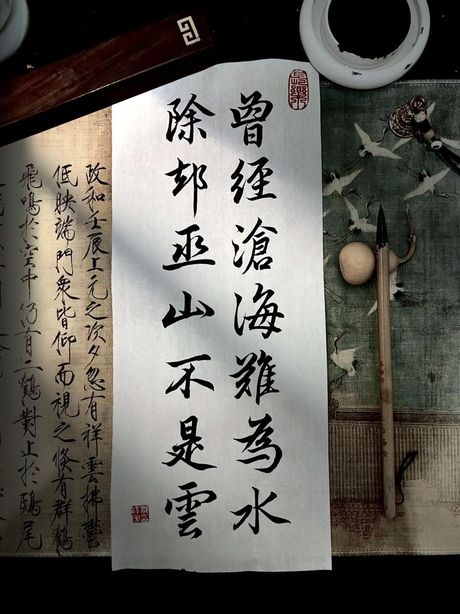 曾經滄海難為水
除却巫山不是雲
政和壬辰上元之次夕忽有祥雲拂鬱
低映端門衆皆仰而視之倏有群鶴
飛鳴於空中仍有二鶴對止於鴟尾